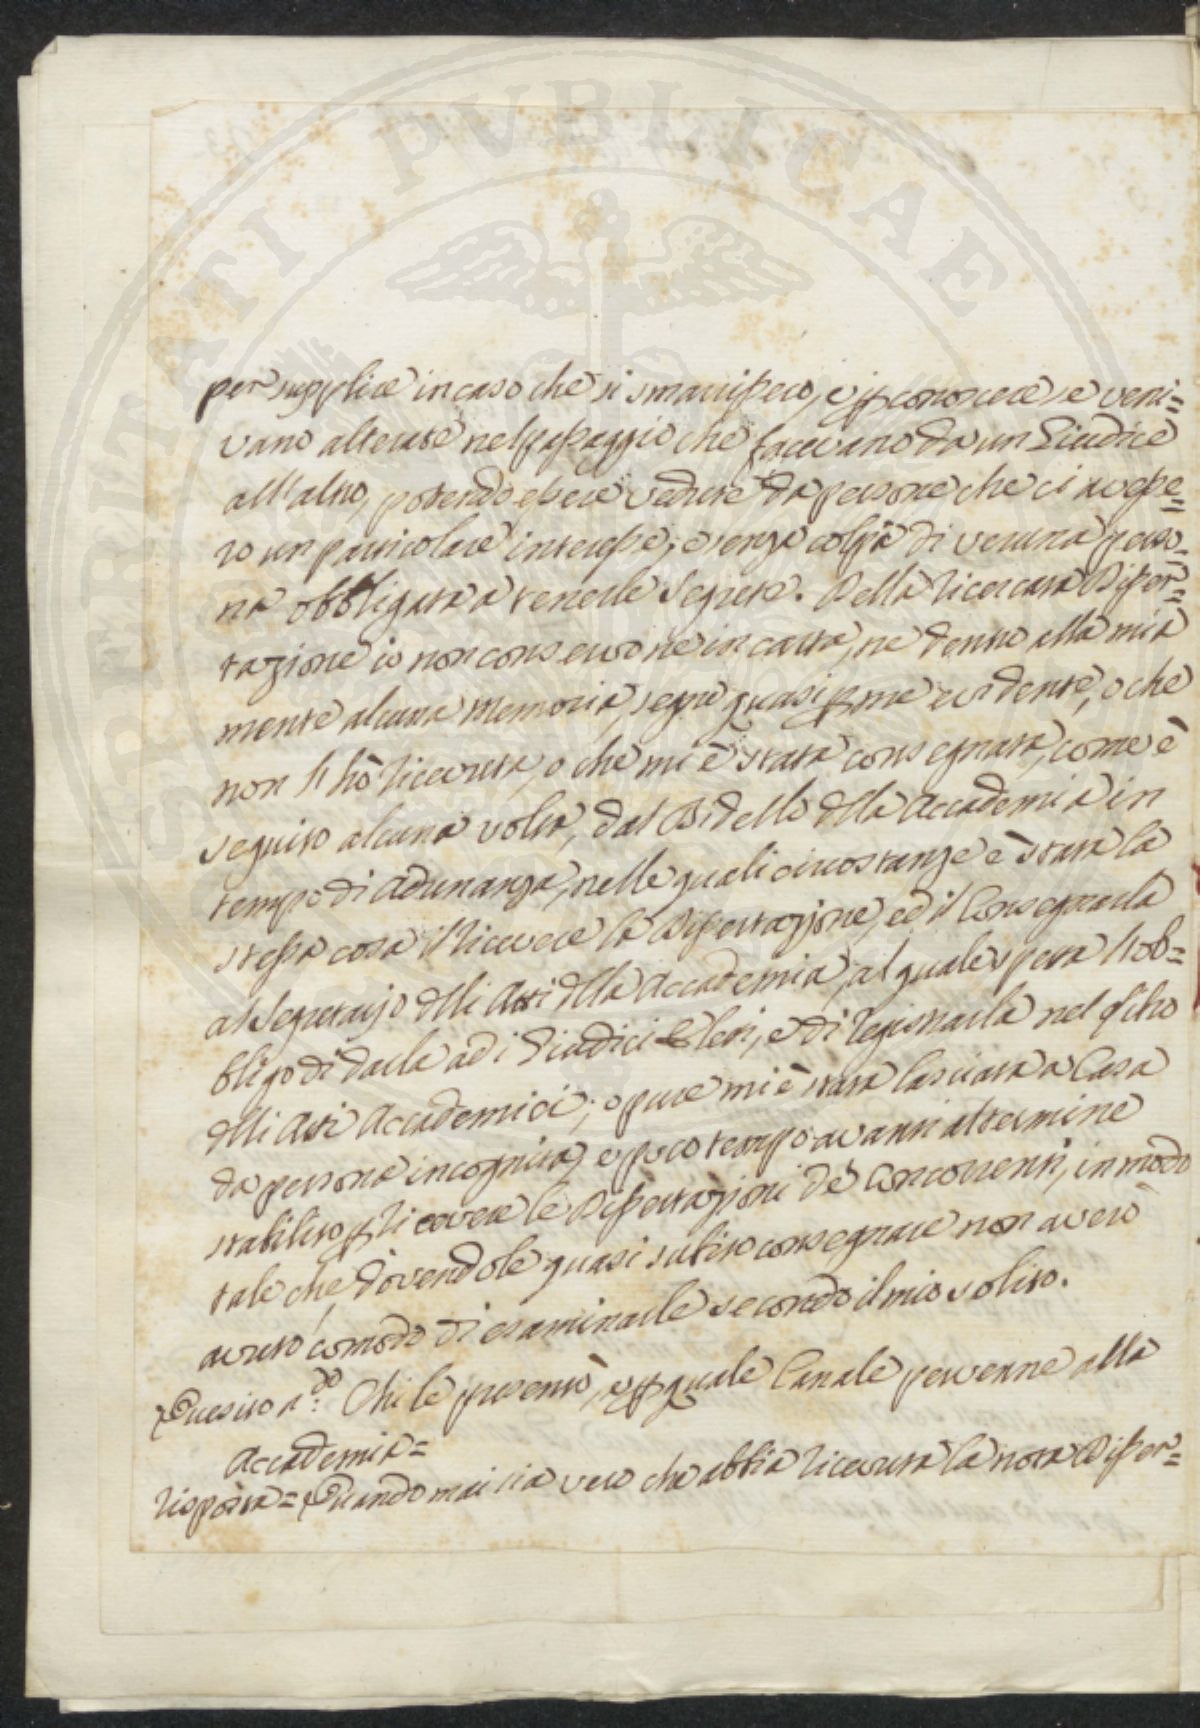 PROSPERITATI PVBLICAE
per supplire in caso che si smarrissero, e p conoscere se veni=
vano alterate nel passaggio che facevano da un Giudice
all'altro, potendo essere vedute da persone che ci avesse=
ro un particolare interesse, e senza colpa di veruna perso-
na obbligata a tenerle segrete. Della ricercata Disser=
tazione io non conservo ne in carta, ne dentro alla mia
mente alcuna memoria, segno quasi p me evidente, o che
non l'hò ricevuta, o che mi è stata consegnata, come è
seguito alcuna volta, dal Bidello dlla Accademia in
tempo di Adunanza, nelle quali circostanze è stata la
stessa cosa il ricevere la Dissertazione, ed il Consegnarla
al Segretario dlli Atti dlla Accademia, al quale spetta l'ob=
bligo di darla ad i Giudici Eletti, e di registrarla nel
dlli Atti Accademici; o pure mi è stata lasciata a Casa
da persona incognita, e poco tempo avanti al termine
stabilito p ricevere le Dissertazioni de Concorrenti, in modo
tale che dovendole quasi subito consegnare non averò
avuto comodo di esaminarle secondo il mio solito.
Quesito 2do: Chi le presentò, e p quale Canale pervenne alla
Accademia=
Risposta= Quando mai sia vero che abbia ricevuta la nota Disser=